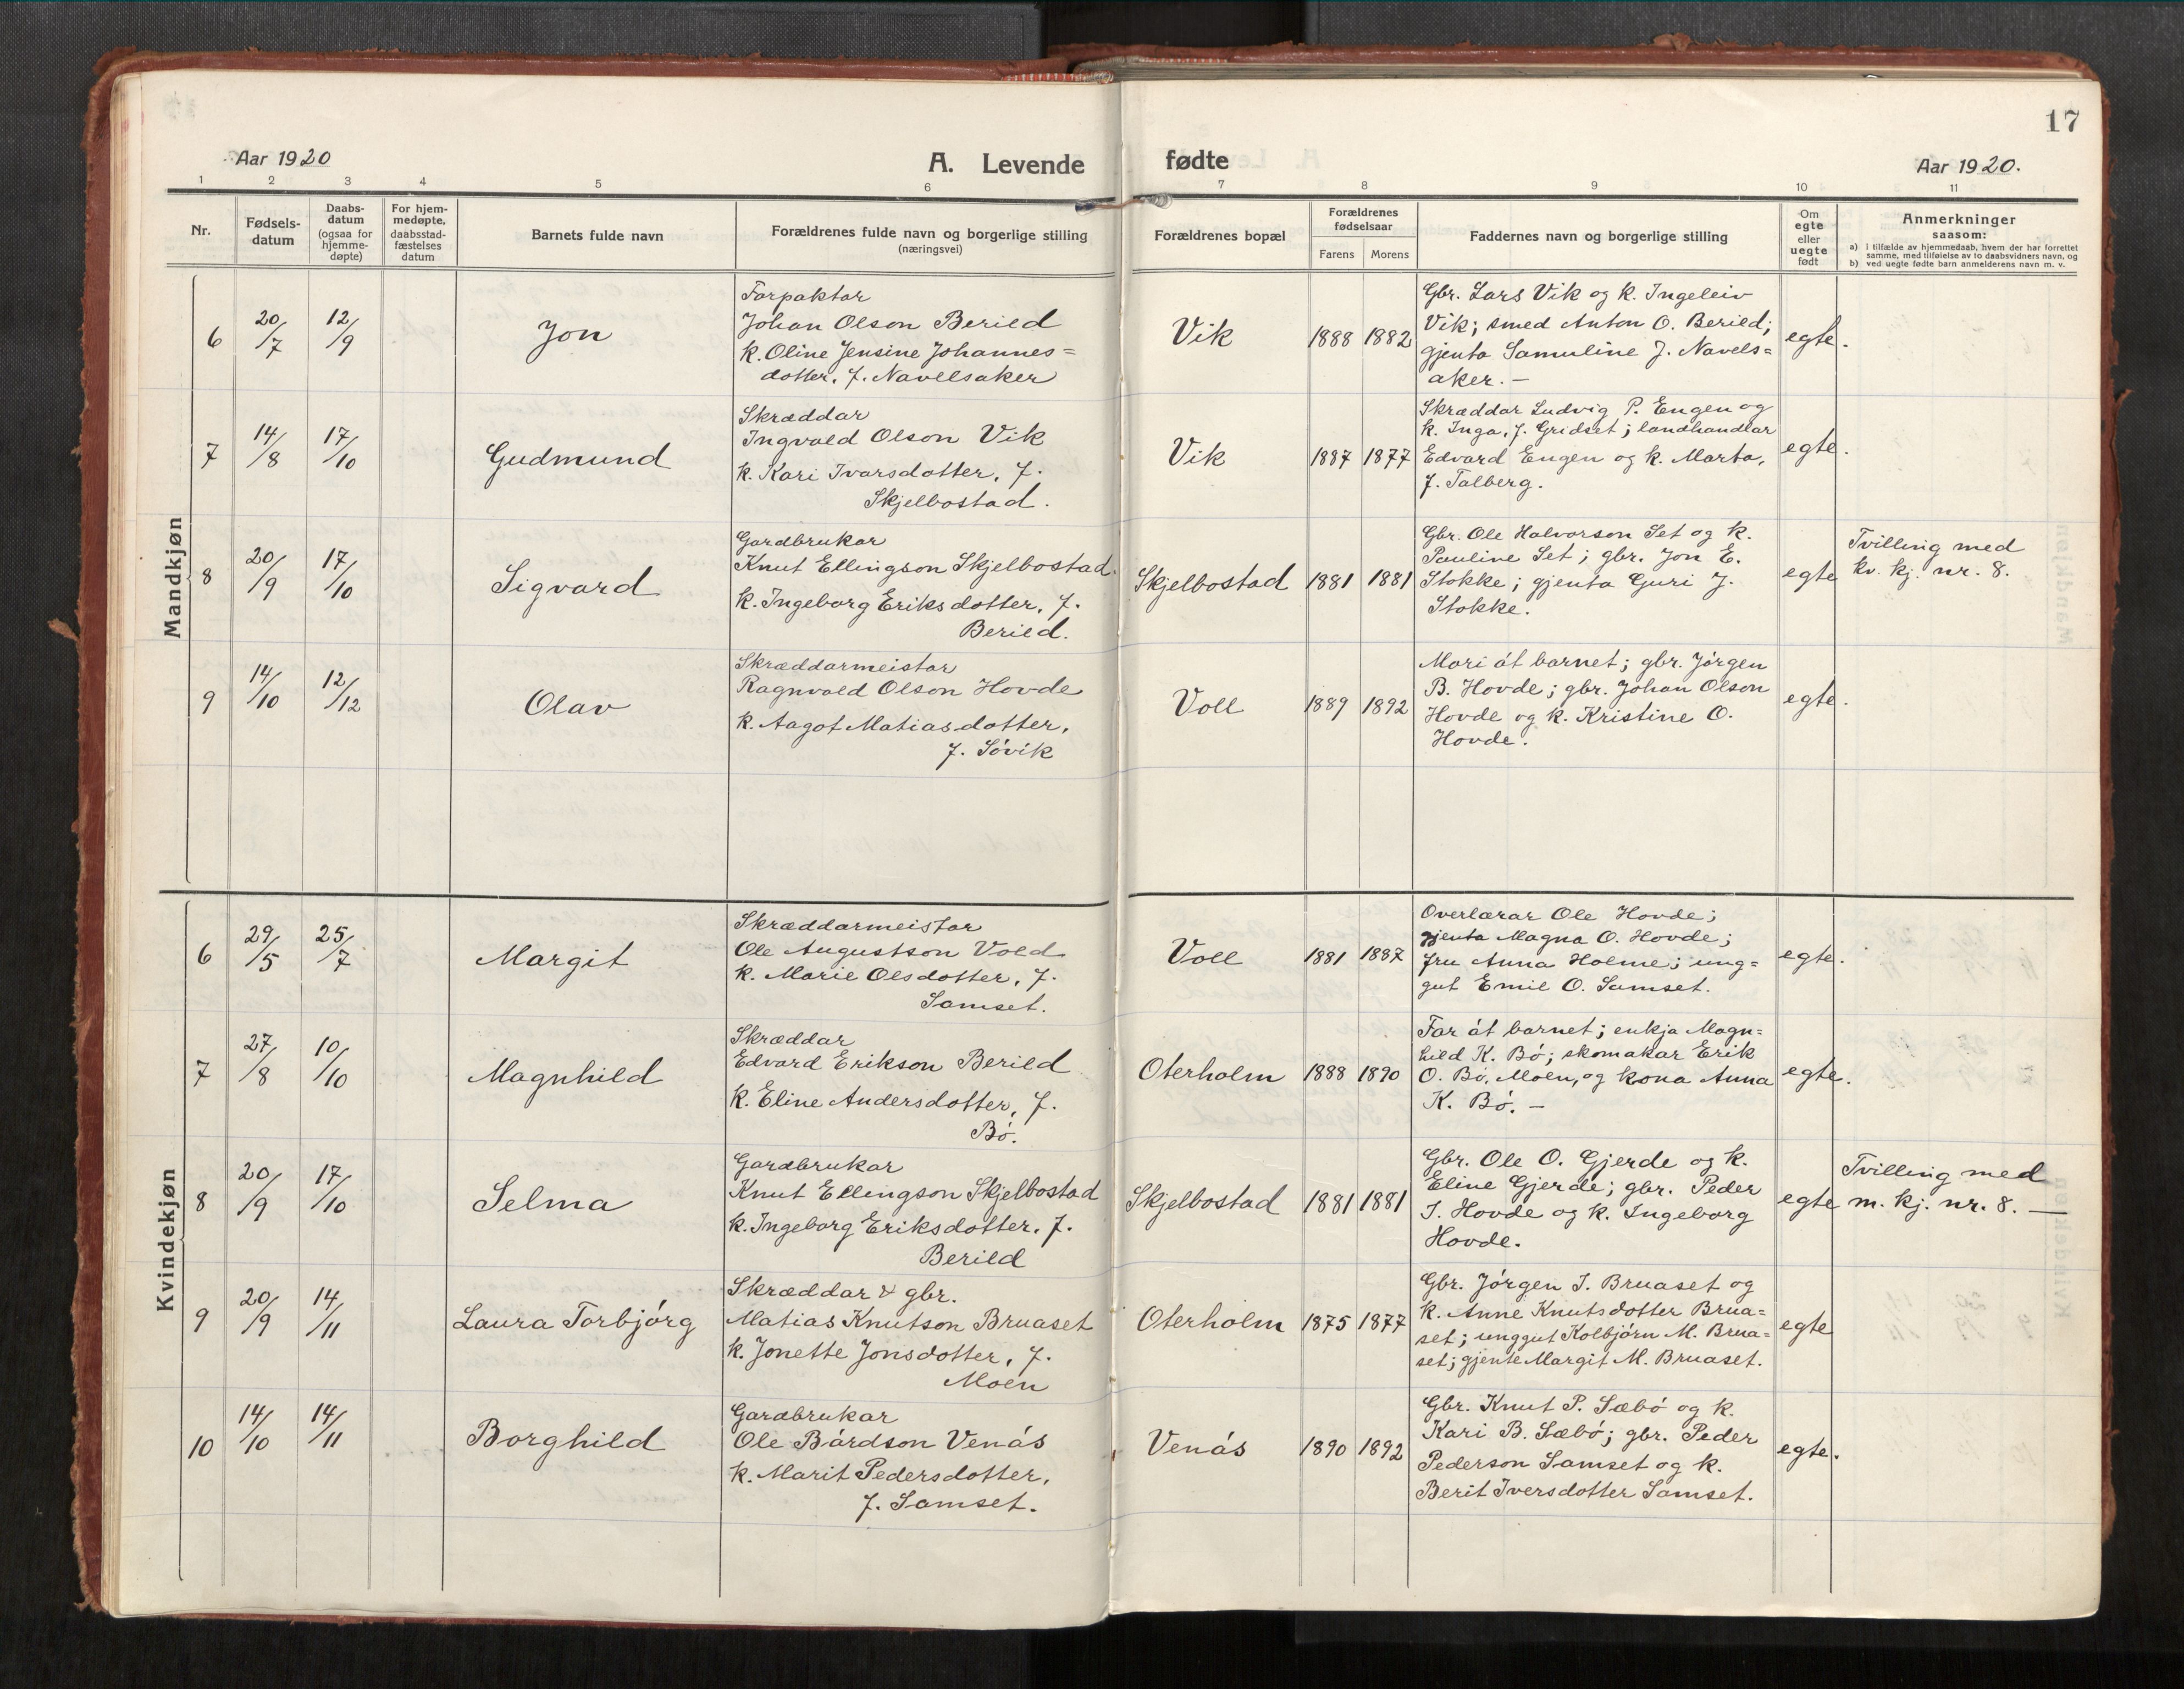 17
Aar 1920
A. Levende fødte
Aar 1920.
1 2 3 4 5 6 7 8 9 10 11
Nr.
Fødsels-
datum
Daabs-
datum
(ogsaa for
hjemme-
døpte)
For hjem-
medøpte,
daabsstad-
fæstelses
datum
Barnets fulde navn
Forældrenes fulde navn og borgerlige stilling
(næringsvei)
Forældrenes bopæl
Forældrenes
fødselsaar
Farens Morens
Faddernes navn og borgerlige stilling
Om
egte
eller
uegte
født
Anmerkninger
saasom:
a) i tilfælde av hjemmedaab, hvem der har forrettet
samme, med tilføielse av to daabsvidners navn, og
b) ved uegte fødte barn anmelderens navn m. v.
Mandkjøn
6
20/7
12/9
Jon
Forpaktar
Johan Olson Berild
k. Oline Jensine Johannes=
dotter, f. Navelsaker
Vik
1888 1882
Gbr. Lars Vik og k. Ingeleiv
Vik; smed Anton O. Berild;
gjenta Samuline J. Navels=
aker. —
egte.
7
14/8
17/10
Gudmund
Skræddar
Ingvald Olson Vik
k. Kari Ivarsdotter, f.
Skjelbostad.
Vik
1887 1877
Skræddar Ludvig P. Engen og
k. Inga, f. Gridset; landhandlar
Edvard Engen og k. Marta,
f. Talberg.
egte.
8
20/9
17/10
Sigvard
Gardbrukar
Knut Ellingson Skjelbostad
k. Ingeborg Eriksdotter, f.
Berild.
Skjelbostad
1881 1881
Gbr. Ole Halvorson Set og k.
Pauline Set; gbr. Jon E.
Stokke; gjenta Guri J.
Stokke.
egte
Tvilling med
kv. kj. nr. 8.
9
14/10
12/12
Olav
Skræddarmeistar
Ragnvald Olson Hovde
k. Aagot Matiasdotter,
f. Sóvik
Voll
1889 1892
Mori åt barnet; gbr. Jórgen
B. Hovde; gbr. Johan Olson
Hovde og k. Kristine O.
Hovde.
egte.
Kvindekjøn
6
29/5
25/7
Margit
Skræddarmeistar
Ole Augustson Vold
k. Marie Olsdotter, f.
Samset.
Voll
1881 1887
Overlærar Ole Hovde;
gjenta Magna O. Hovde;
fru Anna Holme; ung=
gut Emil O. Samset.
egte.
7
27/8
10/10
Magnhild
Skræddar
Edvard Erikson Berild
k. Eline Andersdotter, f.
Bó.
Oterholm
1888 1890
Far åt barnet; enkja Magn=
hild K. Bó; skomakar Erik
O. Bó, Moen, og kona Anna
K. Bó. —
egte.
8
20/9
17/10
Selma
Gardbrukar
Knut Ellingson Skjelbostad
k. Ingeborg Eriksdotter, f.
Berild
Skjelbostad
1881 1881
Gbr. Ole O. Gjerde og k.
Eline Gjerde; gbr. Peder
I. Hovde og k. Ingeborg
Hovde.
egte
Tvilling med
m. kj. nr. 8. —
9
20/9
14/11
Laura Torbjórg
Skræddar & gbr.
Matias Knutson Bruaset
k. Jonette Jonsdotter, f.
Moen
Oterholm
1875 1877
Gbr. Jórgen I. Bruaset og
k. Anne Knutsdotter Brua=
set; unggut Kolbjórn M. Brua=
set; gjente Margit M. Bruaset.
egte
10
14/10
14/11
Borghild
Gardbrukar
Ole Bárdson Venás
k. Marit Pedersdotter,
f. Samset.
Venás
1890 1892
Gbr. Knut P. Sæbó og k.
Kari B. Sæbó; gbr. Peder
Pederson Samset og k.
Berit Iversdotter Samset.
egte.